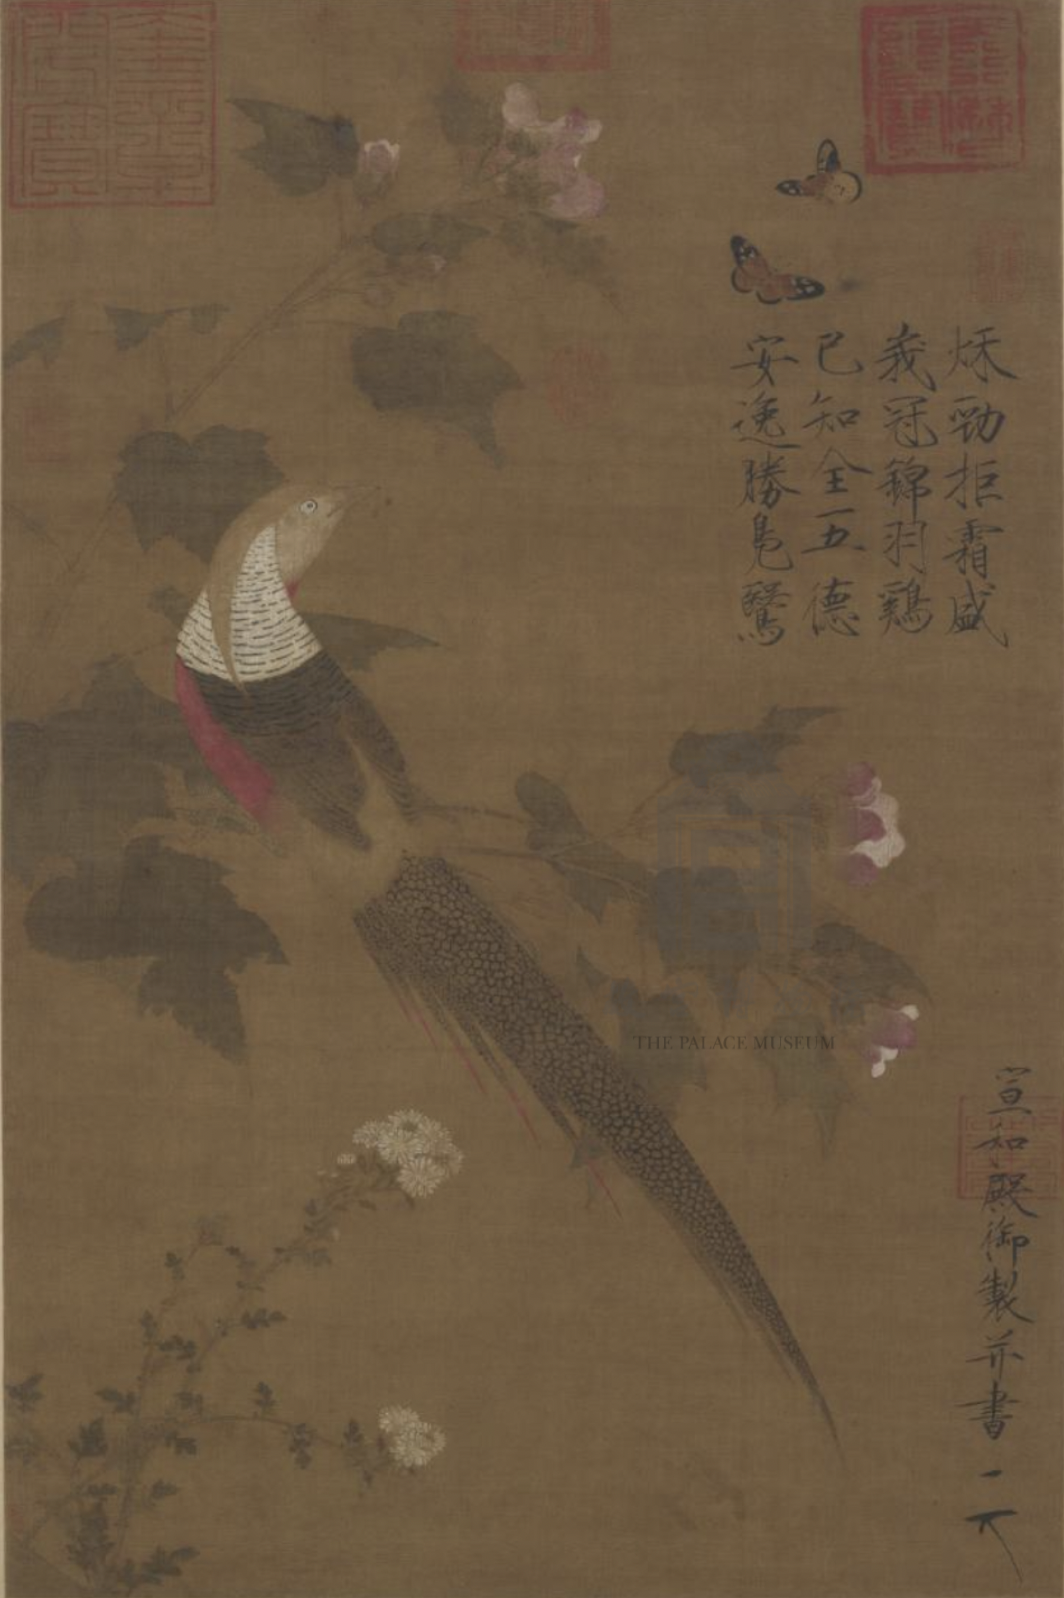 秌勁拒霜盛
峩冠錦羽鷄
已知全五德
安逸勝鳬鷖
宣和殿御製并書
THE PALACE MUSEUM